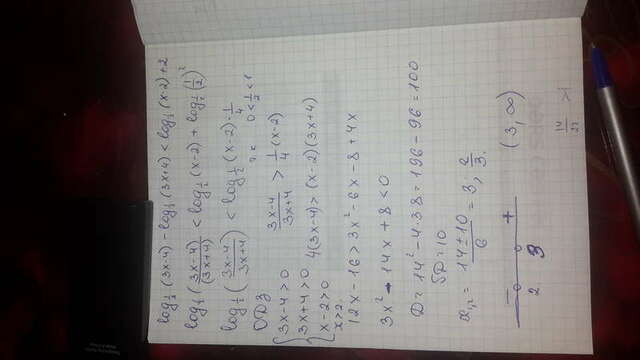 log½(3x-4) - log½(3x+4) < log½(x-2)+2
log½((3x-4)/(3x+4)) < log½(x-2) + log½(½)²
log½((3x-4)/(3x+4)) < log½(x-2)·¼
ОДЗ т.к. 0<½<1
{3x-4>0 (3x-4)/(3x+4) > ¼(x-2)
3x+4>0 4(3x-4)>(x-2)(3x+4)
x-2>0
x>2.
12x-16>3x²-6x-8+4x
3x²-14x+8<0
D=14²-4·3·8=196-96=100
√D=10
x₁,₂=(14±10)/6=3, 2/3.
- +
2 3 (3,∞)
14/27 >1